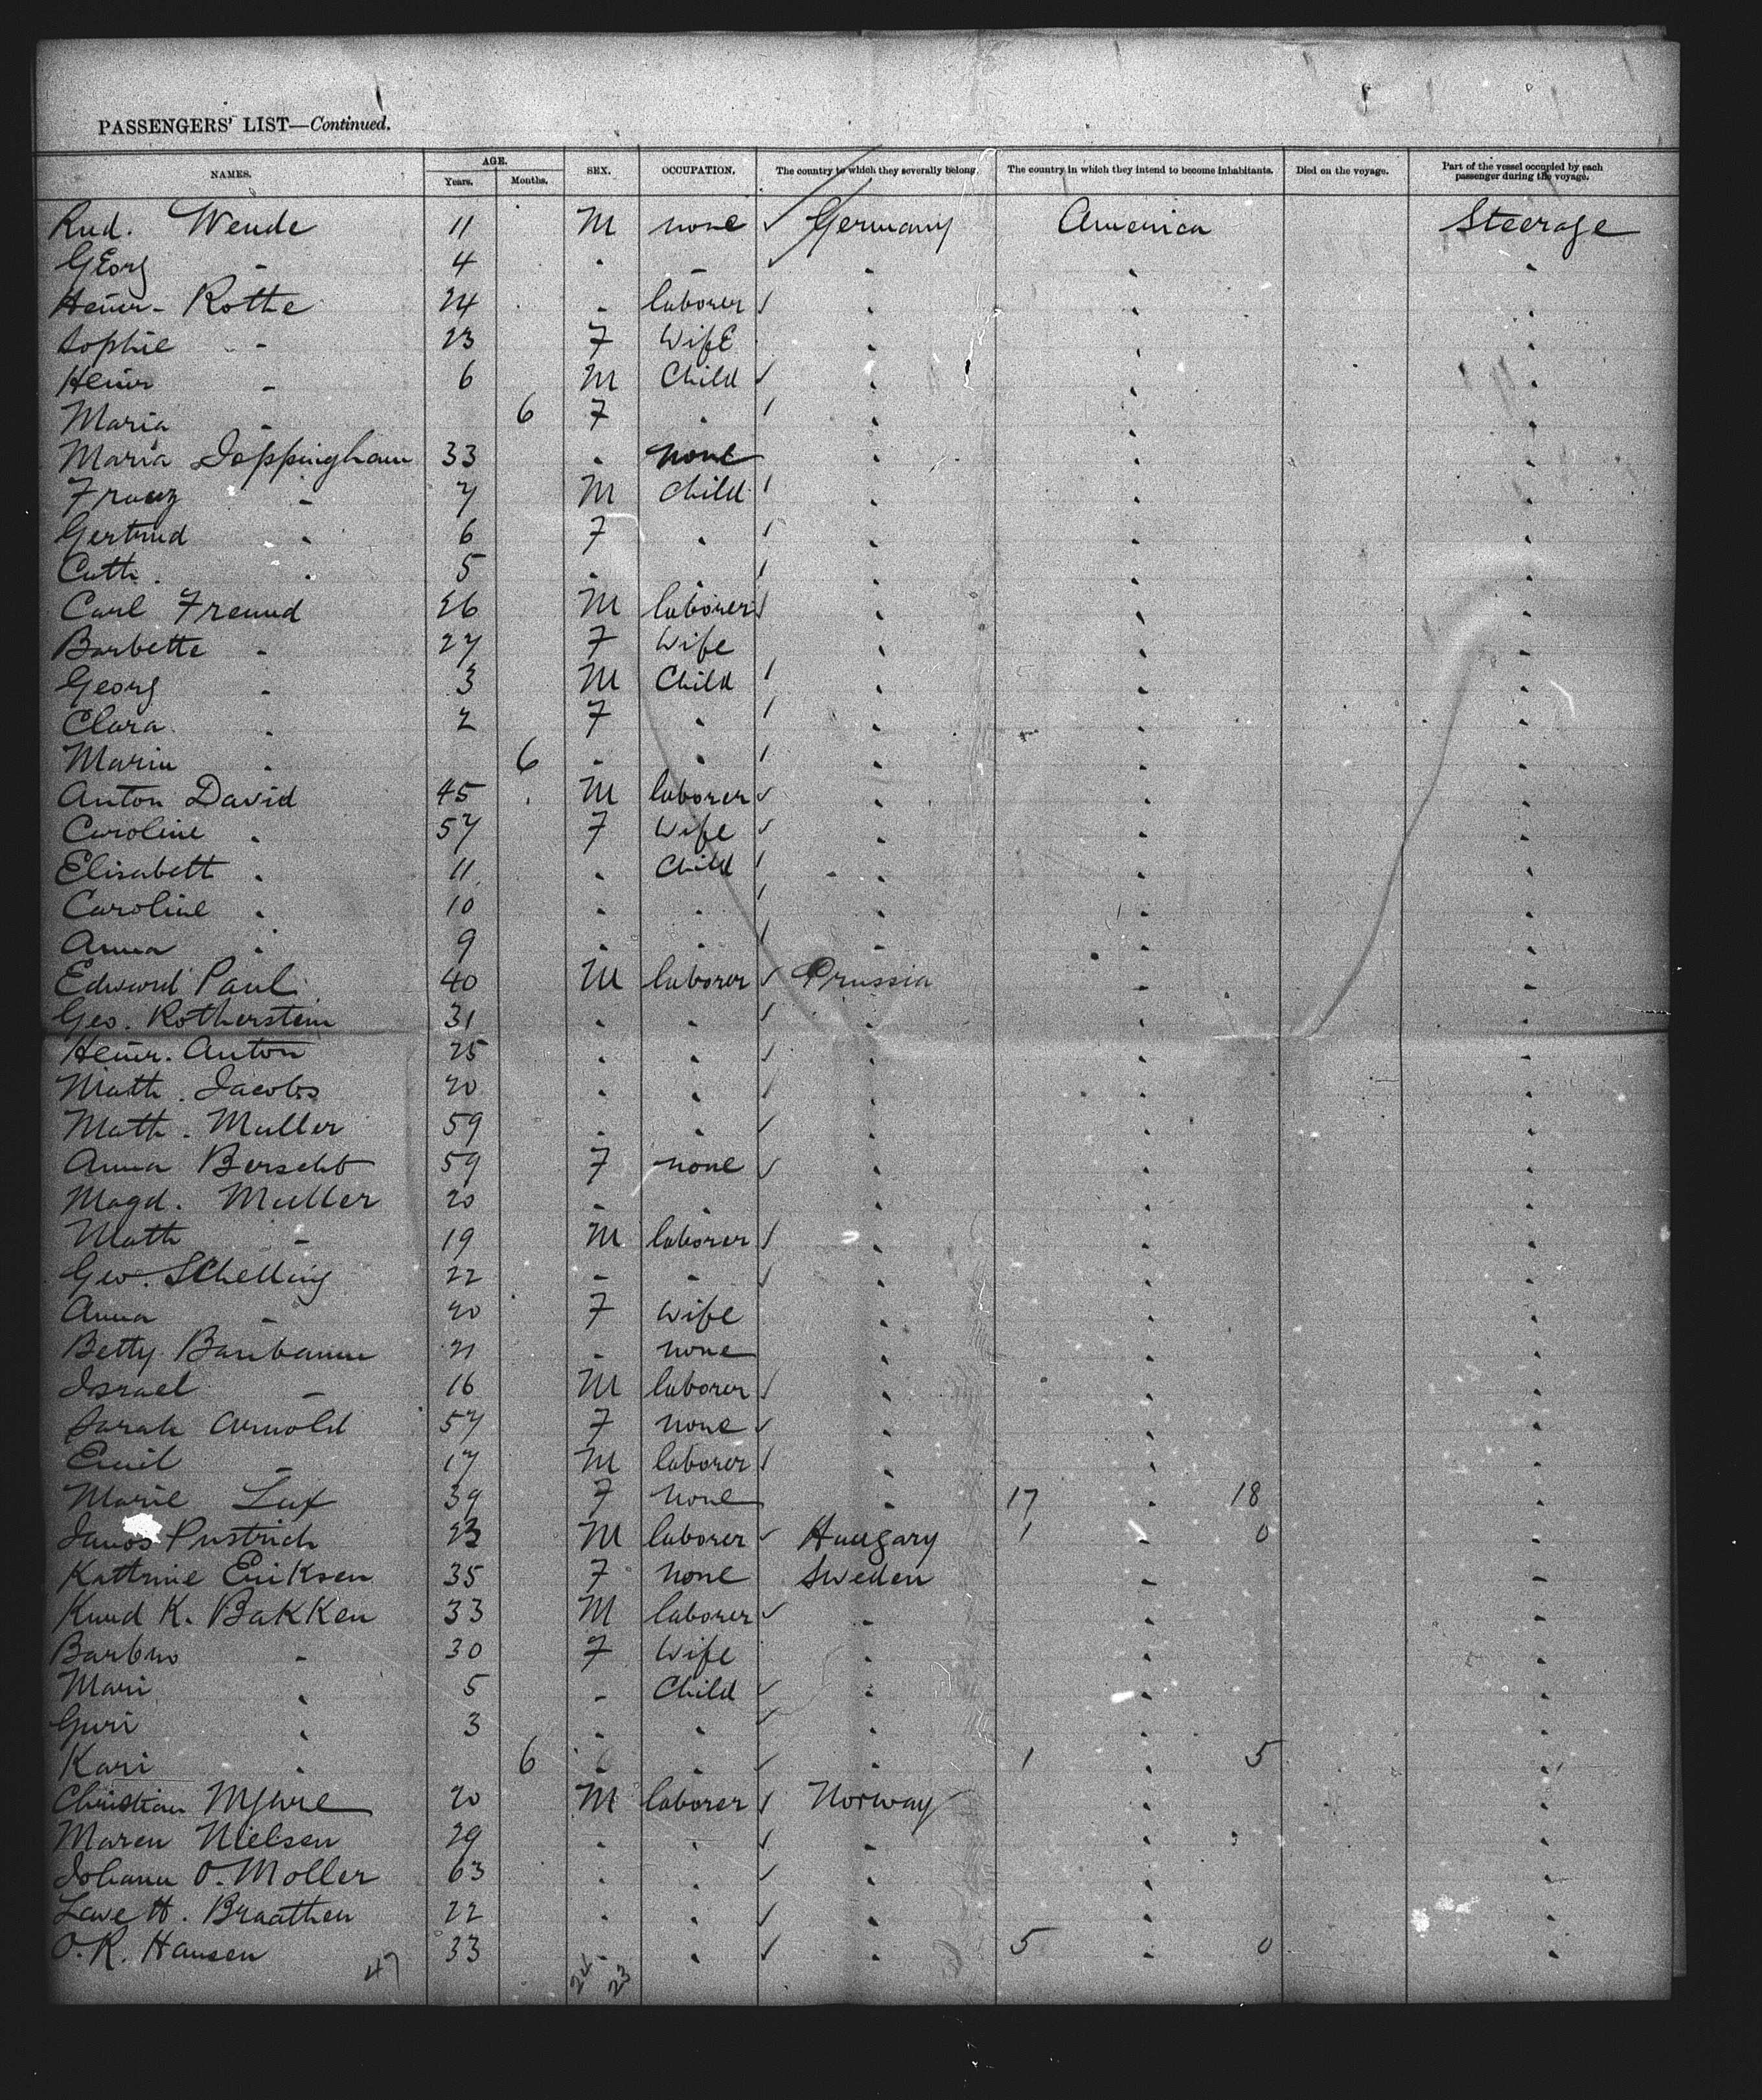 PASSENGERS' LIST—Continued.
NAMES. AGE. Years. Months. SEX. OCCUPATION. The country to which they severally belong. The country in which they intend to become inhabitants. Died on the voyage. Part of the vessel occupied by each passenger during the voyage.
Rud. Wende 11 M none ✓ Germany America Steerage
Georg - 4 " - ✓ " " "
Heinr. Rothe 24 - laborer ✓ " " "
Sophie - 23 F Wife " " "
Heinr - 6 M Child ✓ " " "
Maria - 6 F " ✓ " " "
Maria Joppingham 33 " none " " "
Franz - 7 M Child ✓ " " "
Gertrud " 6 F " ✓ " " "
Cath. " 5 " " ✓ " " "
Carl Freund 26 M laborer ✓ " " "
Barbette - 27 F Wife " " "
Georg - 3 M Child ✓ " " "
Clara " 2 F " ✓ " " "
Maria " 6 - " ✓ " " "
Anton David 45 M laborer ✓ " " "
Caroline " 57 F Wife ✓ " " "
Elisabett " 11 " Child ✓ " " "
Caroline " 10 " " ✓ " " "
Anna " 9 " " ✓ " " "
Edward Paul 40 M laborer ✓ Prussia - "
Geo. Rotherstein 31 " " ✓ " " "
Heinr. Anton 25 " " ✓ " " "
Math. Jacobs 20 " " ✓ " " "
Math. Muller 59 " " ✓ " " "
Anna Berscht 59 F none ✓ " " "
Magd. Muller 20 - " " " "
Math - 19 M laborer ✓ " " "
Geo. Schelling 22 - - ✓ " " "
Anna - 20 F Wife " " "
Betty 21 - none " " "
Israel - 16 M laborer ✓ " " "
Sarah Arnold 57 F none ✓ " " "
Emil - 17 M laborer ✓ " " "
Marie Lux 39 F none " 17 " 18 "
Janos Pustrich 23 M laborer ✓ Hungary 1 - 0 "
Kattrine Eriksen 35 F none Sweden - "
Knud K. Bakken 33 M laborer ✓ - " "
Barbro - 30 F Wife " " "
Mari " 5 - Child ✓ " " "
Guri " 3 " " ✓ " " "
Kari " 6 " " ✓ " 1 " 5 "
Christian 20 M laborer ✓ Norway " "
Maren Nielsen 29 " " ✓ " " "
Johann O. Moller 63 " " ✓ " " "
H. Braathen 22 " " ✓ " " "
O. R. Hansen 33 - " ✓ " 5 - 0 "
47 24 23